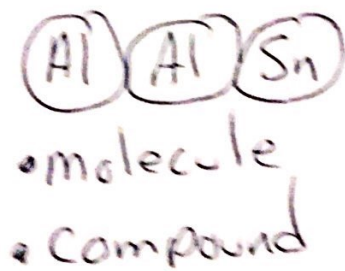 Al Al Sn
• molecule
• compound